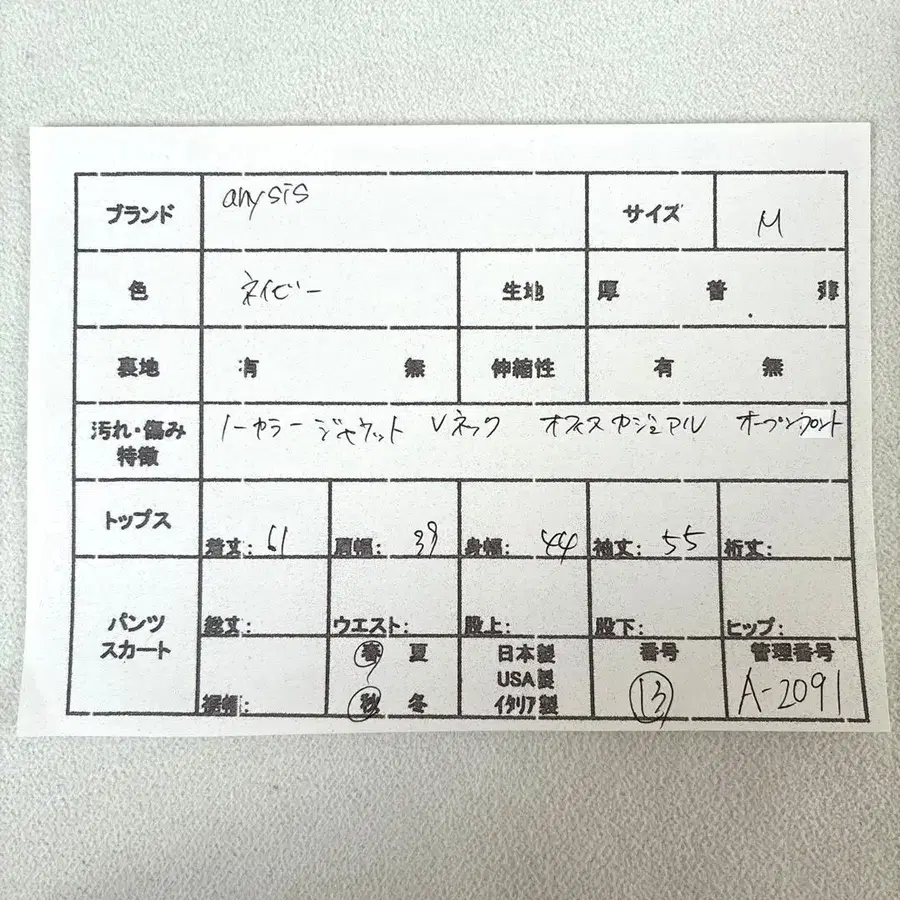 ブランド anysis サイズ M
色 ネイビー 生地 厚 普 薄
裏地 有 無 伸縮性 有 無
汚れ・傷み 特徴 ノーカラージャケット Vネック オフィスカジュアル オープンフロント
トップス 着丈: 61 肩幅: 39 身幅: 44 袖丈: 55 裄丈:
パンツ スカート 総丈: ウエスト: 股上: 股下: ヒップ:
裾幅: 春 夏 日本製 番号 管理番号
USA製
秋 冬 イタリア製 13 A-2091